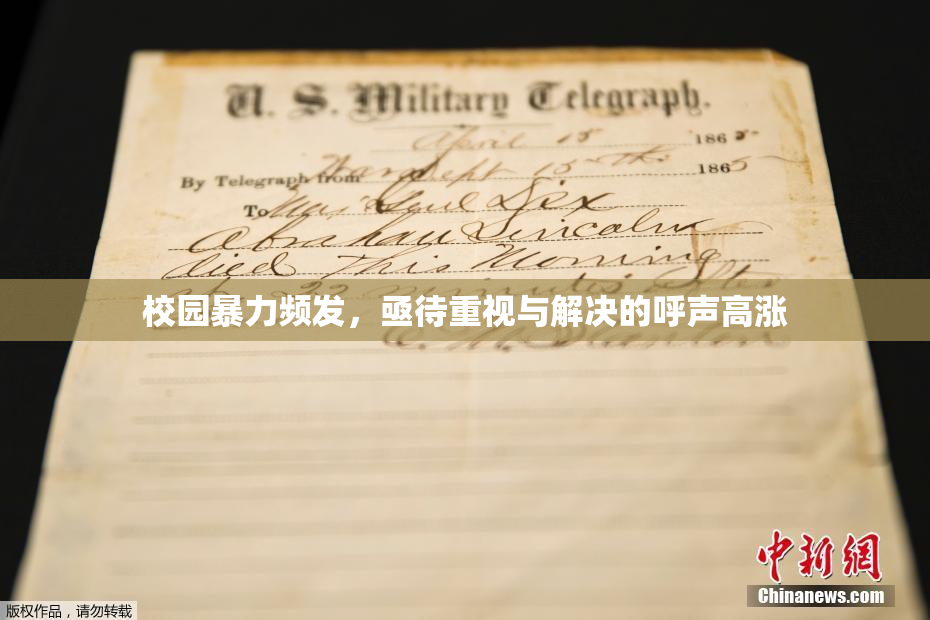 U. S. Military Telegraph.
April 15 1865
By Telegraph from War Dept 15th 1865
To Maj Genl Dix
Abraham Lincoln
died This Morning
at 22 minutes after
校园暴力频发，亟待重视与解决的呼声高涨
E. M. Stanton
中新網
Chinanews.com
版权作品，请勿转载